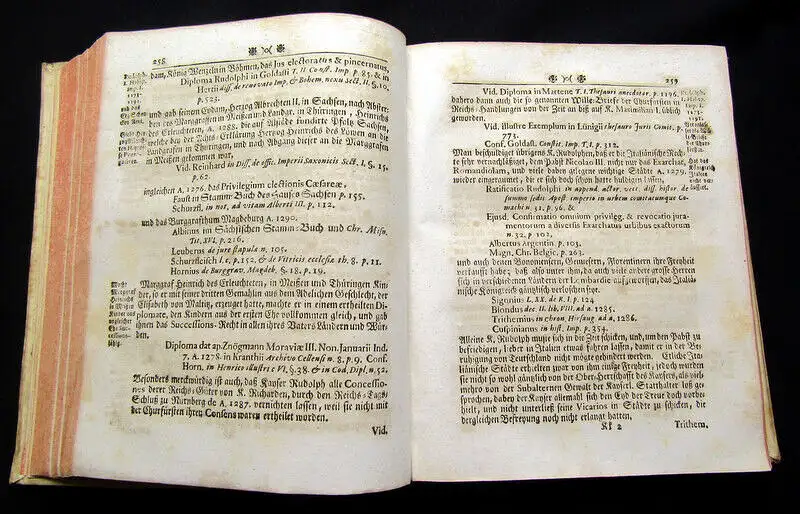 258
dam, König Wenzeln in Böhmen, das Jus electoratus & pincernatus,
Diploma Rudolphi in Goldasti T. II Const. Imp. p. 85. & in
Hertii diss. de renovato Imp. & Bohem. nexu Sect. II. §. 10.
p. 523.
und gab seinem Eydam, Herzog Albrechten II. in Sachsen, nach Abster-
ben des Marggrafen in Meißen und Landgr. in Thüringen, Heinrichs
des Erleuchteten, A. 1288. die auf Alstädt fundirte Pfaltz Sachsen,
welche bey der Achts-Erklärung Herzog Heinrichs des Löwen an die
Landgrafen in Thüringen, und nach Abgang dieser an die Marggrafen
in Meißen gekommen war,
Vid. Reinhard in Diss. de offic. Imperii Saxonicis Sect. I. §. 15.
p. 62.
ingleichen A. 1276. das Privilegium electionis Cæsareæ,
Faust in Stamm-Buch des Hauses Sachsen p. 155.
Schurzfl. in not. ad vitam Alberti III. p. 112.
und das Burggrafthum Magdeburg A. 1290.
Albinus im Sächsischen Stamm-Buch und Chr. Misn.
Tit. XVI. p. 216.
Leuberus de jure stapulæ n. 105.
Schurzfleisch l. c. p. 152. & de Vitricis ecclesiæ th. 8. p. 11.
Hornius de Burggrav. Magdeb. §. 18. p. 19.
Marggraf Heinrich des Erleuchteten, in Meißen und Thüringen Kin-
der, so er mit seiner dritten Gemahlin aus dem Adelichen Geschlecht, der
Elisabeth von Maltiz, erzeuget hatte, machte er in einem ertheilten Di-
plomate, den Kindern aus der ersten Ehe vollkommen gleich, und gab
ihnen das Successions-Recht in allen ihres Vaters Ländern und Wür-
den.
Diploma dat ap. Znögmann Moraviæ III. Non. Januarii Ind.
7. A. 1278. in Kranthii Archivo Cellensi n. 8. p. 9. Conf.
Horn. in Henrico illustri c VI. §. 38. & in Cod. Dipl. n. 52.
Besonders merckwürdig ist auch, daß Kayser Rudolph alle Concessio-
nes derer Reichs-Güter von K. Richarden, durch den Reichs-Tags-
Schluß zu Nürnberg de A. 1287. vernichten lassen, weil sie nicht mit
der Churfürsten ihren Consens waren ertheilet worden.
Vid.
259
Vid. Diploma in Martene T. I. Thesauri anecdotor. p. 1196.
dahero dann auch die so genannten Wille-Briefe der Churfürsten in
Reichs-Handlungen von der Zeit an biß auf K. Maximilian I. üblich
geworden.
Vid. illustre Exemplum in Lünigii thesauro Juris Comit. p.
773.
Conf. Goldast. Constit. Imp. T. I. p. 312.
Man beschuldiget übrigens K. Rudolphen, daß er die Italiänische Rech-
te sehr vernachläßiget, dem Pabst Nicolao III. nicht nur das Exarchat,
Romandiolam, und viele dabey gelegene wichtige Städte A. 1279.
wieder eingeräumet, die er sich doch schon hatte huldigen lassen,
Ratificatio Rudolphi in append. actor. vett. diss. histor. de
summo sedis Apost. imperio in urbem comitatumque Co-
machi n. 31. p. 96. &
Ejusd. Confirmatio omnium privileg. & revocatio jura-
mentorum a diversis Exarchatus urbibus exactorum
n. 32. p. 102.
Albertus Argentin. p. 103.
Magn. Chr. Belgic. p. 263.
und auch denen Bononiensern, Genuesern, Florentinern ihre Freyheit
verkauft habe; daß also unter ihm, da auch viele andere grosse Herren
sich in verschiedenen Ländern der Lombardie aufgeworfen, das Italiä-
nische Königreich gänzlich verloschen sey.
Sigonius L. XX. de R. I. p. 124
Blondus dec. II. lib. VIII. ad a. 1285.
Trithemius in chron. Hirsaug. ad a. 1286.
Cuspinianus in hist. Imp. p. 354.
Alleine K. Rudolph muste sich in die Zeit schicken, und, um den Pabst zu
befriedigen, lieber in Italien etwas fahren lassen, damit er in der Be-
ruhigung von Teutschland nicht mögte gehindert werden. Etliche Ita-
liänische Städte erhielten zwar von ihm einige Freyheit, jedoch wurden
sie nicht so wohl gänzlich von der Ober-Herrschafft des Kaysers, als viel-
mehr von der Subalternen Gewalt der Kayserl. Statthalter loß ge-
sprochen, dabey der Kayser allemahl sich den Eyd der Treue doch vorbe-
hielt, und nicht unterließ seine Vicarios in Städte zu schicken, die
dergleichen Befreyung noch nicht erlangt hatten.
Kk 2 Trithem.